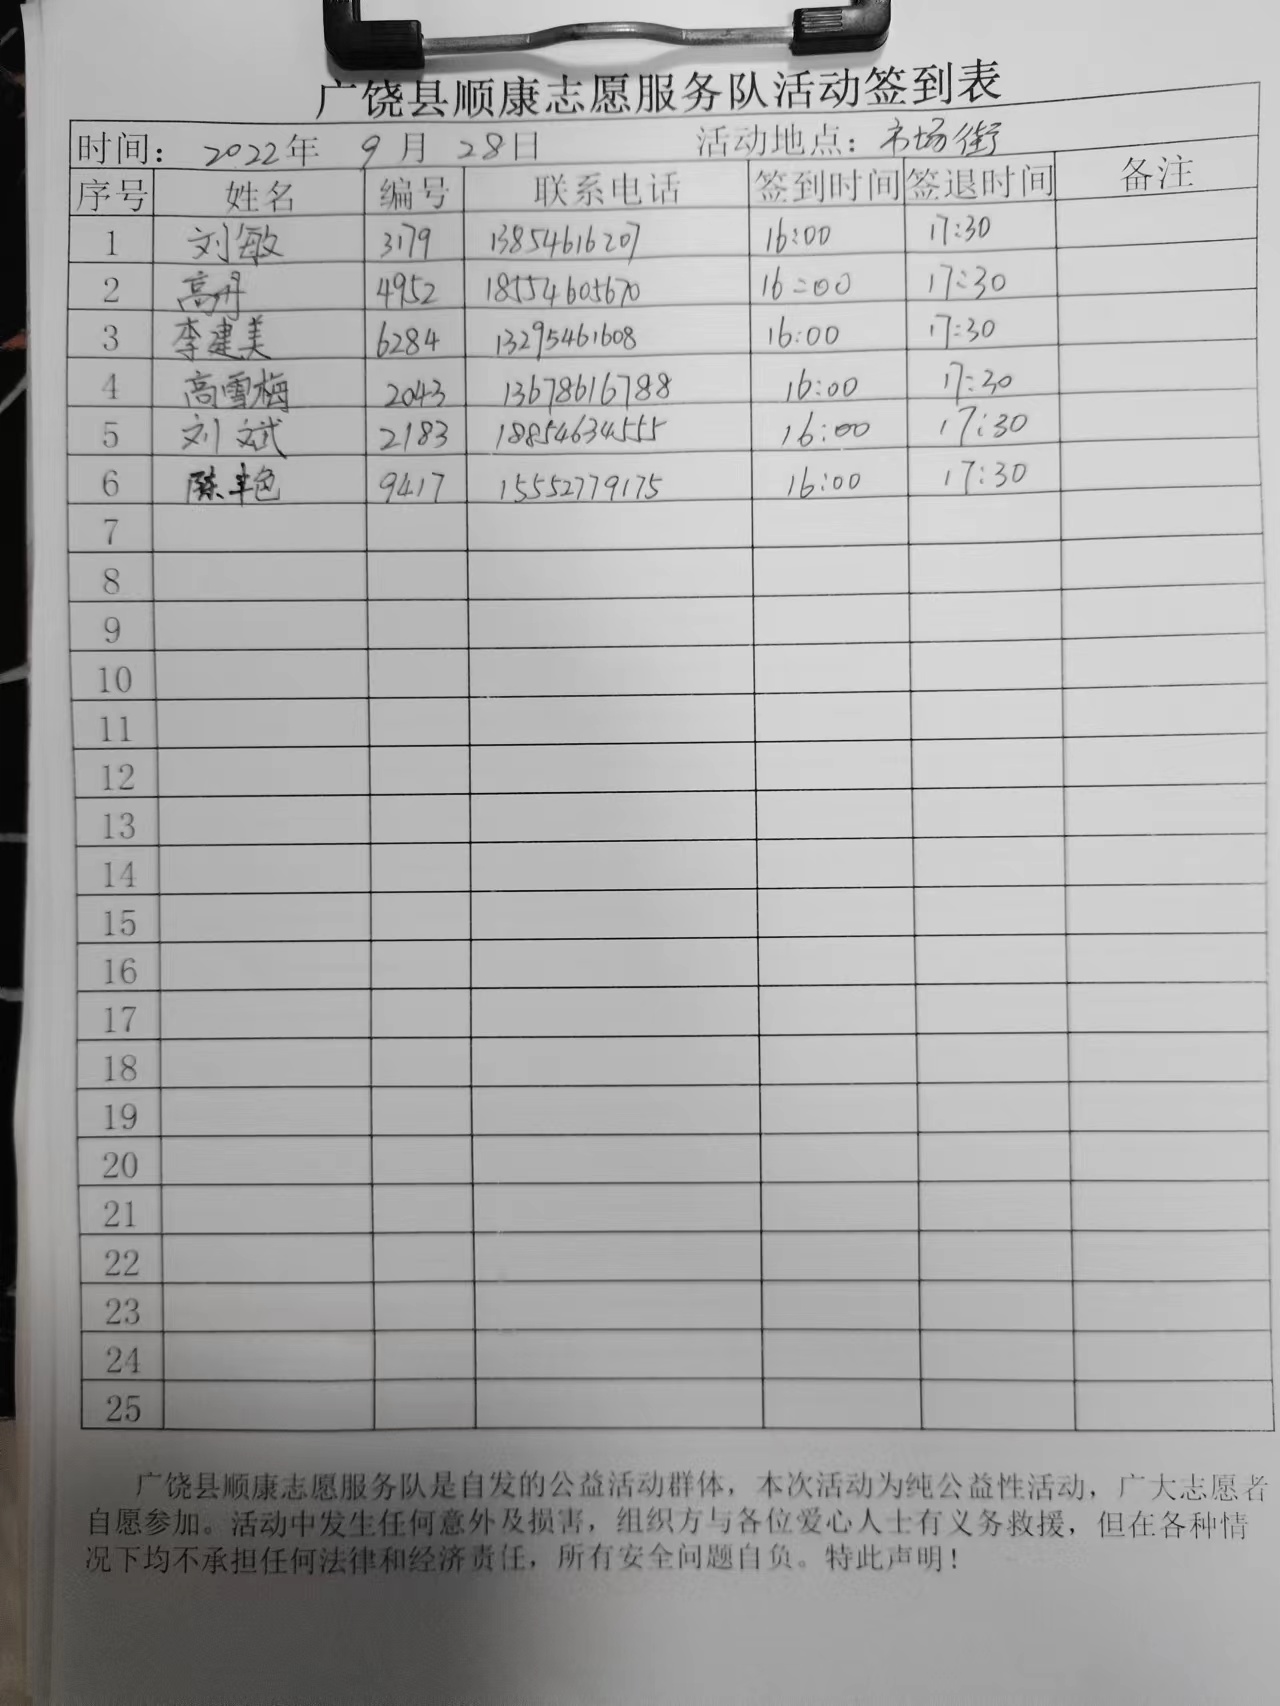 广饶县顺康志愿服务队活动签到表
时间：2022年 9月 28日 活动地点：市场街
序号 姓名 编号 联系电话 签到时间 签退时间 备注
1 刘敏 3179 13854616207 16:00 17:30
2 高丹 4952 18554605670 16:00 17:30
3 李建美 6284 13295461608 16:00 17:30
4 高雪梅 2043 13678616788 16:00 17:30
5 刘斌 2183 18854634555 16:00 17:30
6 陈丰色 9417 15552779175 16:00 17:30
7
8
9
10
11
12
13
14
15
16
17
18
19
20
21
22
23
24
25
广饶县顺康志愿服务队是自发的公益活动群体，本次活动为纯公益性活动，广大志愿者
自愿参加。活动中发生任何意外及损害，组织方与各位爱心人士有义务救援，但在各种情
况下均不承担任何法律和经济责任，所有安全问题自负。特此声明！